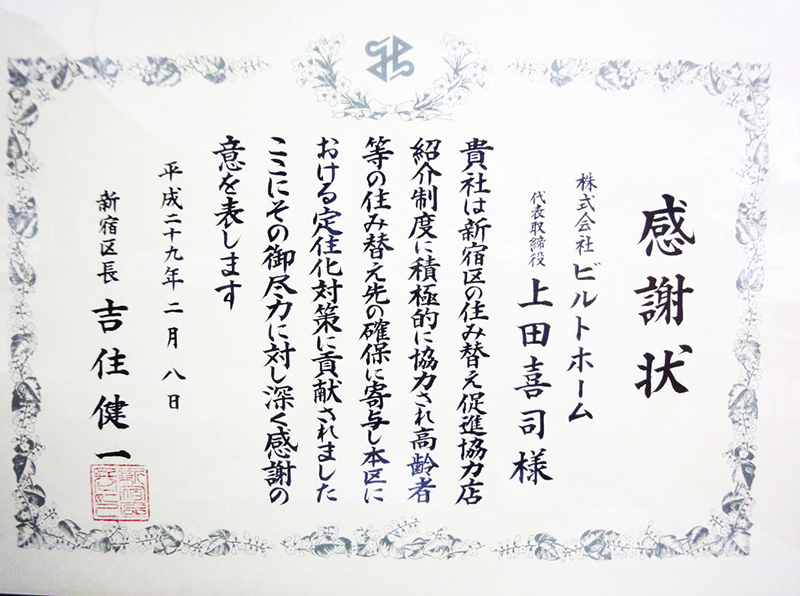 感謝状
株式会社 ビルトホーム
代表取締役 上田喜司様
貴社は新宿区の住み替え促進協力店
紹介制度に積極的に協力され高齢者
等の住み替え先の確保に寄与し本区に
おける定住化対策に貢献されました
ここにその御尽力に対し深く感謝の
意を表します
平成二十九年二月八日
新宿区長 吉住健一